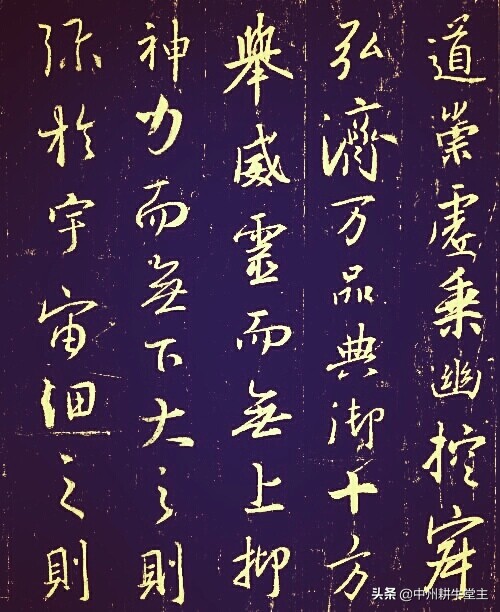 道崇虛乘幽控寂
弘濟万品典御十方
舉威靈而無上抑
神力而無下大之則
弥於宇宙細之則
头条 @中州耕生堂主